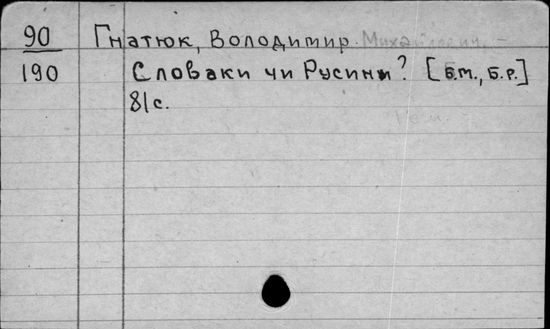 90 Гнатюк, Володимир Михайлович. –
190 Словаки чи Русини? [б.м., б.р.]
81с.